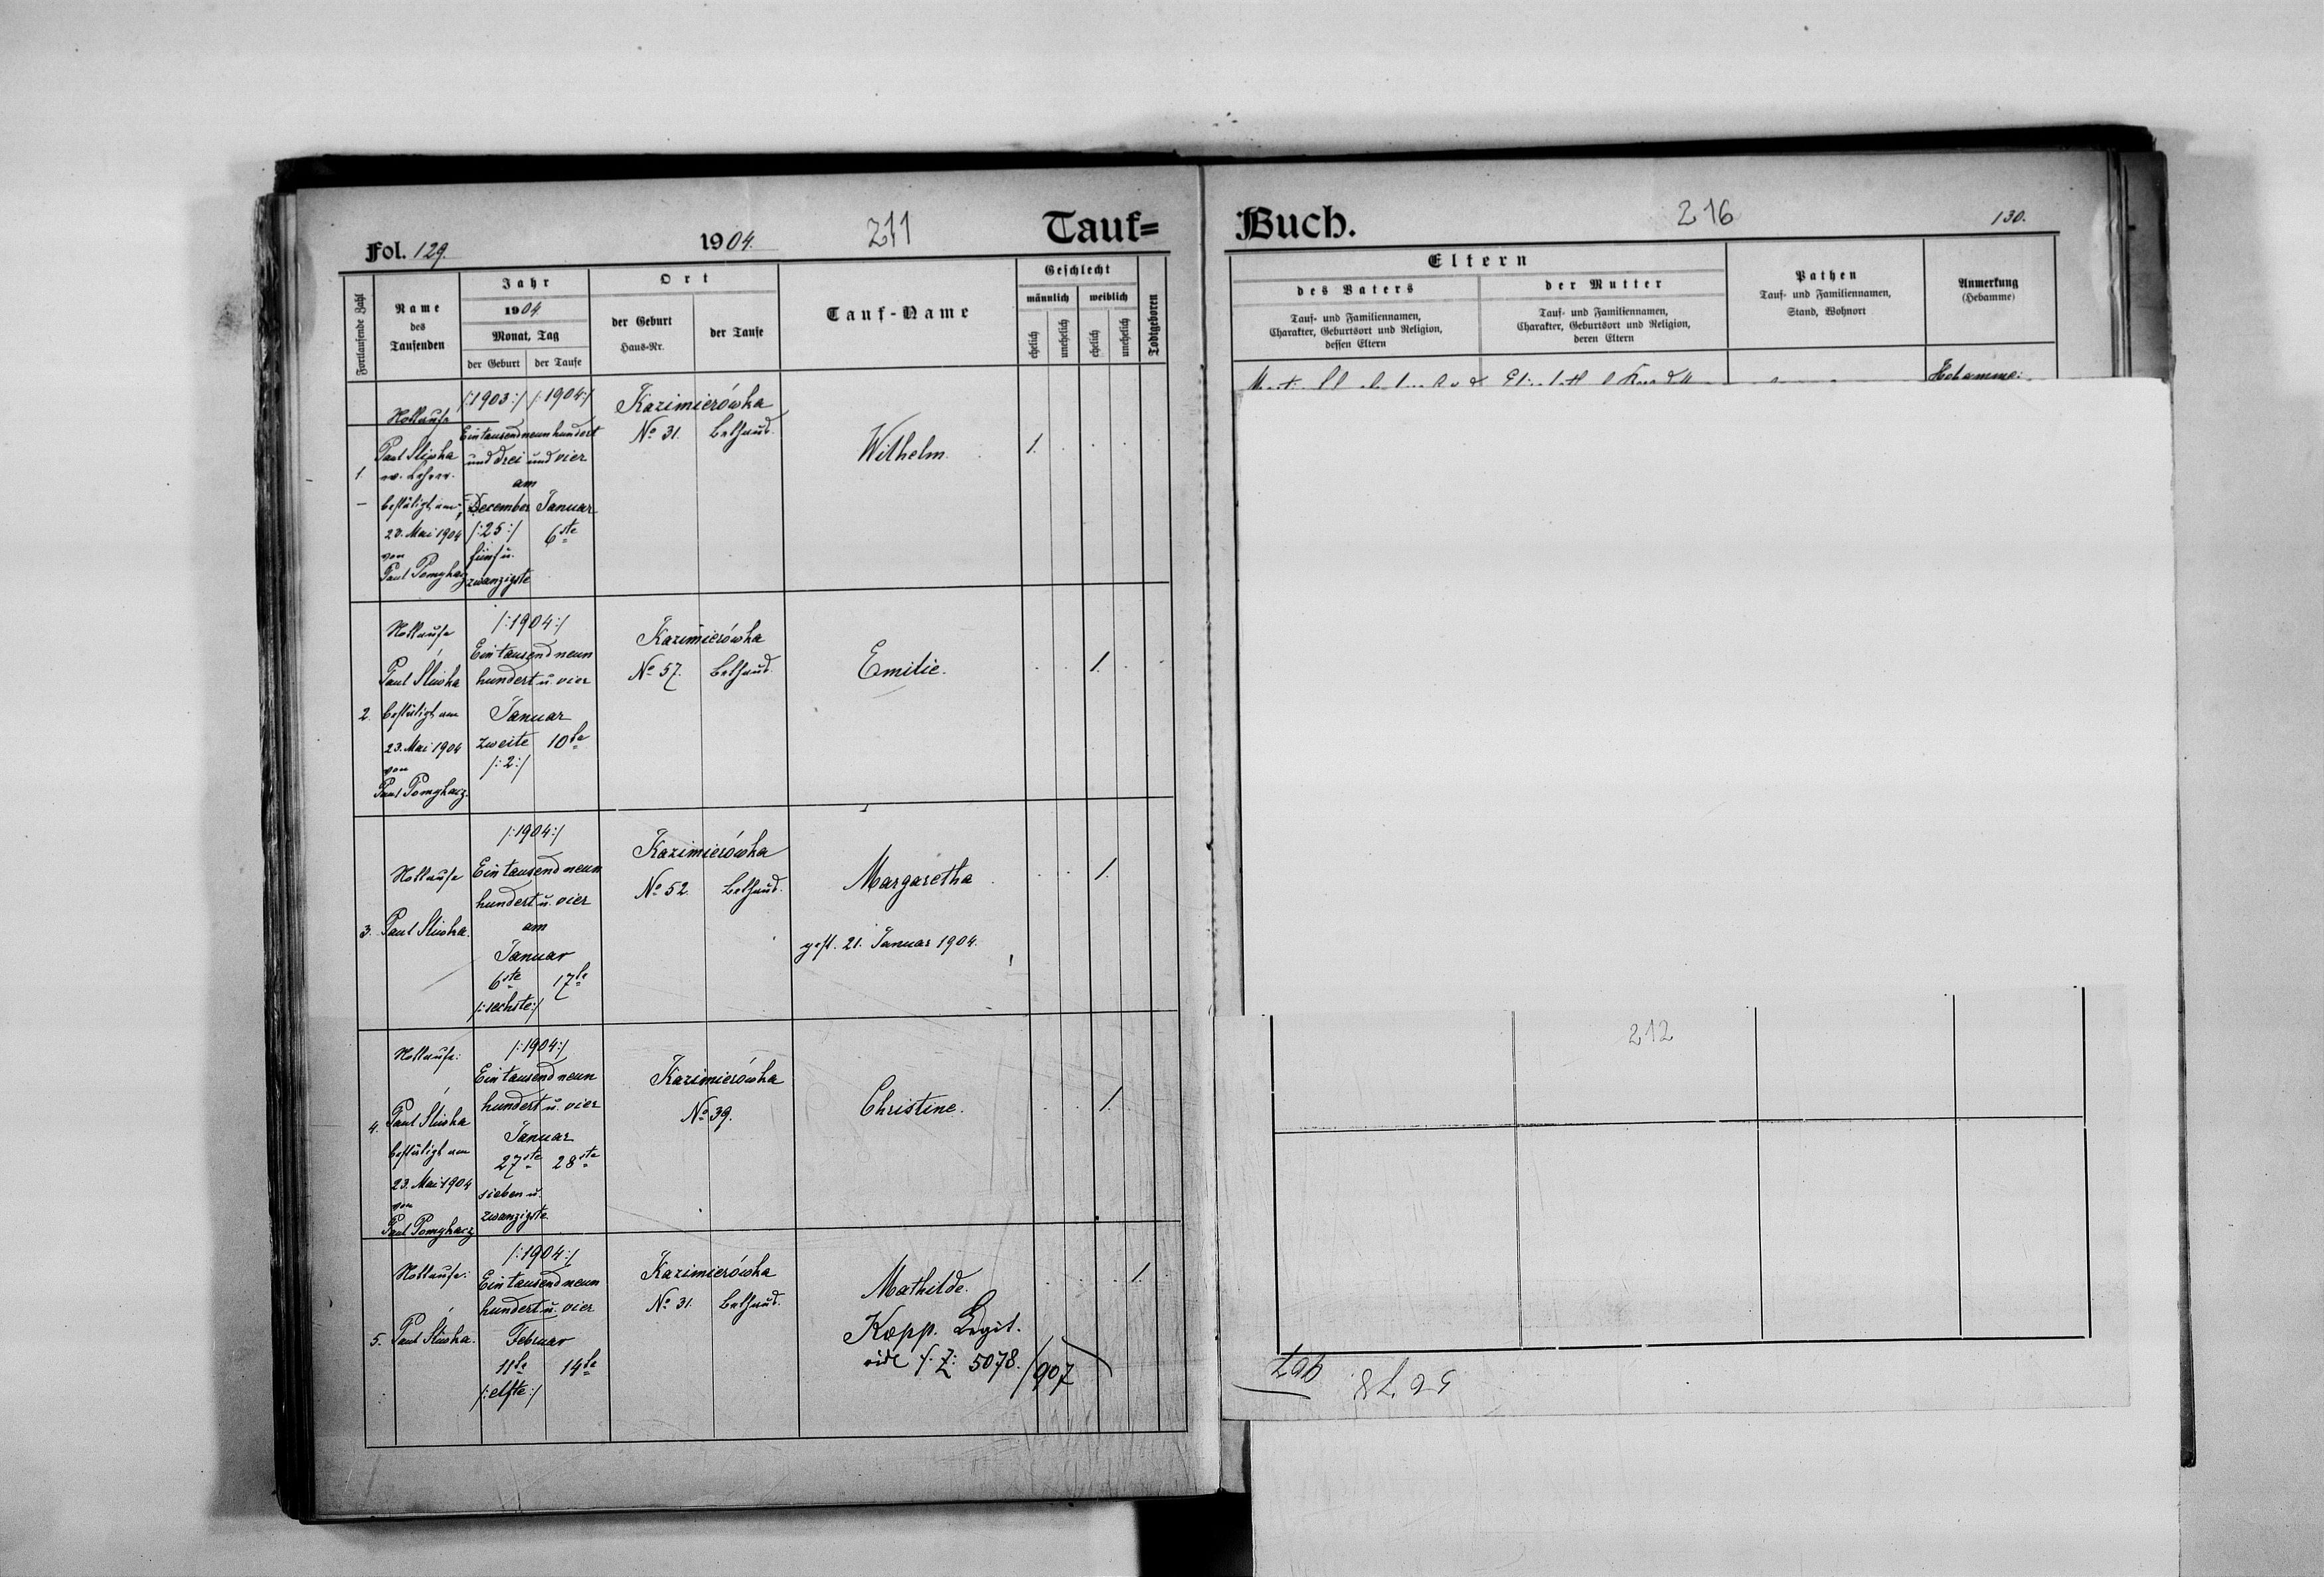 Fol. 129.
1904.
211
Tauf=
Fortlaufende Zahl
Name des Taufenden
Jahr
1904
Monat, Tag
der Geburt
der Taufe
Ort
der Geburt
Haus-Nr.
der Taufe
Tauf-Name
Geschlecht
männlich
weiblich
ehelich
unehelich
ehelich
unehelich
Todtgeboren
1.
Nottaufe
Paul Sliwka
ev. Lehrer.
bestätigt am
23. Mai 1904
von
Paul Pomykacz
/:1903:/ /:1904:/
Eintausendneunhundert
und drei und vier
am
December Januar
/:25:/ 6ste
fünf u.
zwanzigste
Kazimierówka
No 31. Bethaus.
Wilhelm.
1.
2.
Nottaufe
Paul Sliwka
bestätigt am
23. Mai 1904
von
Paul Pomykacz.
/:1904:/
Eintausendneun
hundert u. vier
Januar
zweite 10te
/:2:/
Kazimierówka
No 57. Bethaus.
Emilie.
1.
3.
Nottaufe
Paul Sliwka.
/:1904:/
Eintausendneun
hundert u. vier
am
Januar
6ste 17te
/:sechste:/
Kazimierówka
No 52. Bethaus.
Margaretha
gest. 21. Januar 1904.
1.
4.
Nottaufe:
Paul Sliwka
bestätigt am
23. Mai 1904
von
Paul Pomykacz
/:1904:/
Eintausendneun
hundert u. vier
Januar
27ste 28ste
sieben u.
zwanzigste.
Kazimierówka
No 39.
Christine.
1.
5.
Nottaufe:
Paul Sliwka.
/:1904:/
Eintausendneun
hundert u. vier
Februar
11te 14te
/:elfte:/
Kazimierówka
No 31. Bethaus.
Mathilde.
Kopp. Legit.
vide s. Z: 5078./907
1.
Buch.
216
130.
Eltern
des Vaters
Tauf- und Familiennamen,
Charakter, Geburtsort und Religion,
dessen Eltern
der Mutter
Tauf- und Familiennamen,
Charakter, Geburtsort und Religion,
deren Eltern
Pathen
Tauf- und Familiennamen,
Stand, Wohnort
Anmerkung
(Hebamme)
Hebamme:
212
907
5078